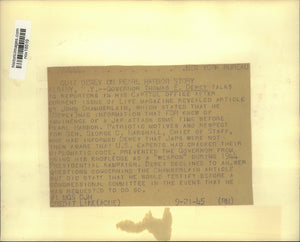 NEW YORK BUREAU
QUIZ DEWEY ON PEARL HARBOR STORY
ALBANY, N.Y.--GOVERNOR THOMAS E. DEWEY TALKS
TO REPORTERS IN HIS CAPITOL OFFICE AFTER
CURRENT ISSUE OF LIFE MAGAZINE REVEALED ARTICLE
BY JOHN CHAMBERLAIN, WHICH STATED THAT HE
(DEWEY) HAD INFORMATION THAT FDR KNEW OF
IMMINENCE OF A JAP ATTACK SOME TIME BEFORE
PEARL HARBOR. PATRIOTIC MOTIVES AND RESPECT
FOR GEN. GEORGE C. MARSHALL, CHIEF OF STAFF,
WHO HAD INFORMED DEWEY THAT JAPS WERE NOT
THEN AWARE THAT U.S. EXPERTS HAD CRACKED THEIR
CODE, PREVENTED THE GOVERNOR FROM
USING HIS KNOWLEDGE AS A "WEAPON" DURING 1944
PRESIDENTIAL CAMPAIGN. DEWEY DECLINED TO ANSWER
QUESTIONS CONCERNING THE CHAMBERLAIN ARTICLE
BUT DID STATE THAT HE WOULD TESTIFY BEFORE A
CONGRESSIONAL COMMITTEE IN THE EVENT THAT HE
WAS REQUESTED TO DO SO.
CREDIT LINE (ACME) 9-21-45 (RM)
historicimages.com